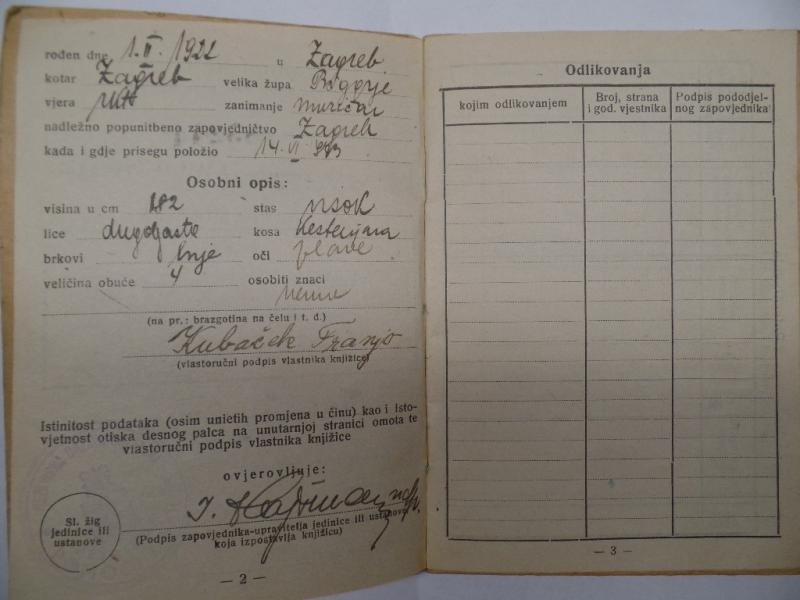 rođen dne 1. II. 1922 u Zagreb
kotar Zagreb velika župa Prigorje
vjera rkt zanimanje
nadležno popunitbeno zapovjedničtvo Zagreb
kada i gdje prisegu položio 14 VI 943
Osobni opis:
visina u cm 182 stas visok
lice dugoljasto kosa kestenjava
brkovi brije oči plave
veličina obuće 4 osobiti znaci
nema
(na pr.: brazgotina na čelu i t. d.)
Kubaček Franjo
(vlastoručni podpis vlastnika knjižice)
Istinitost podataka (osim unietih promjena u činu) kao i isto-
vjetnost otiska desnog palca na unutarnjoj stranici omota te
vlastoručni podpis vlastnika knjižice
ovjerovljuje:
(Podpis zapovjednika-upravitelja jedinice ili ustanove
koja izpostavlja knjižicu)
Sl. žig
jedinice ili
ustanove
— 2 —
Odlikovanja
kojim odlikovanjem
Broj, strana
i god. vjestnika
Podpis pododjel-
nog zapovjednika
— 3 —